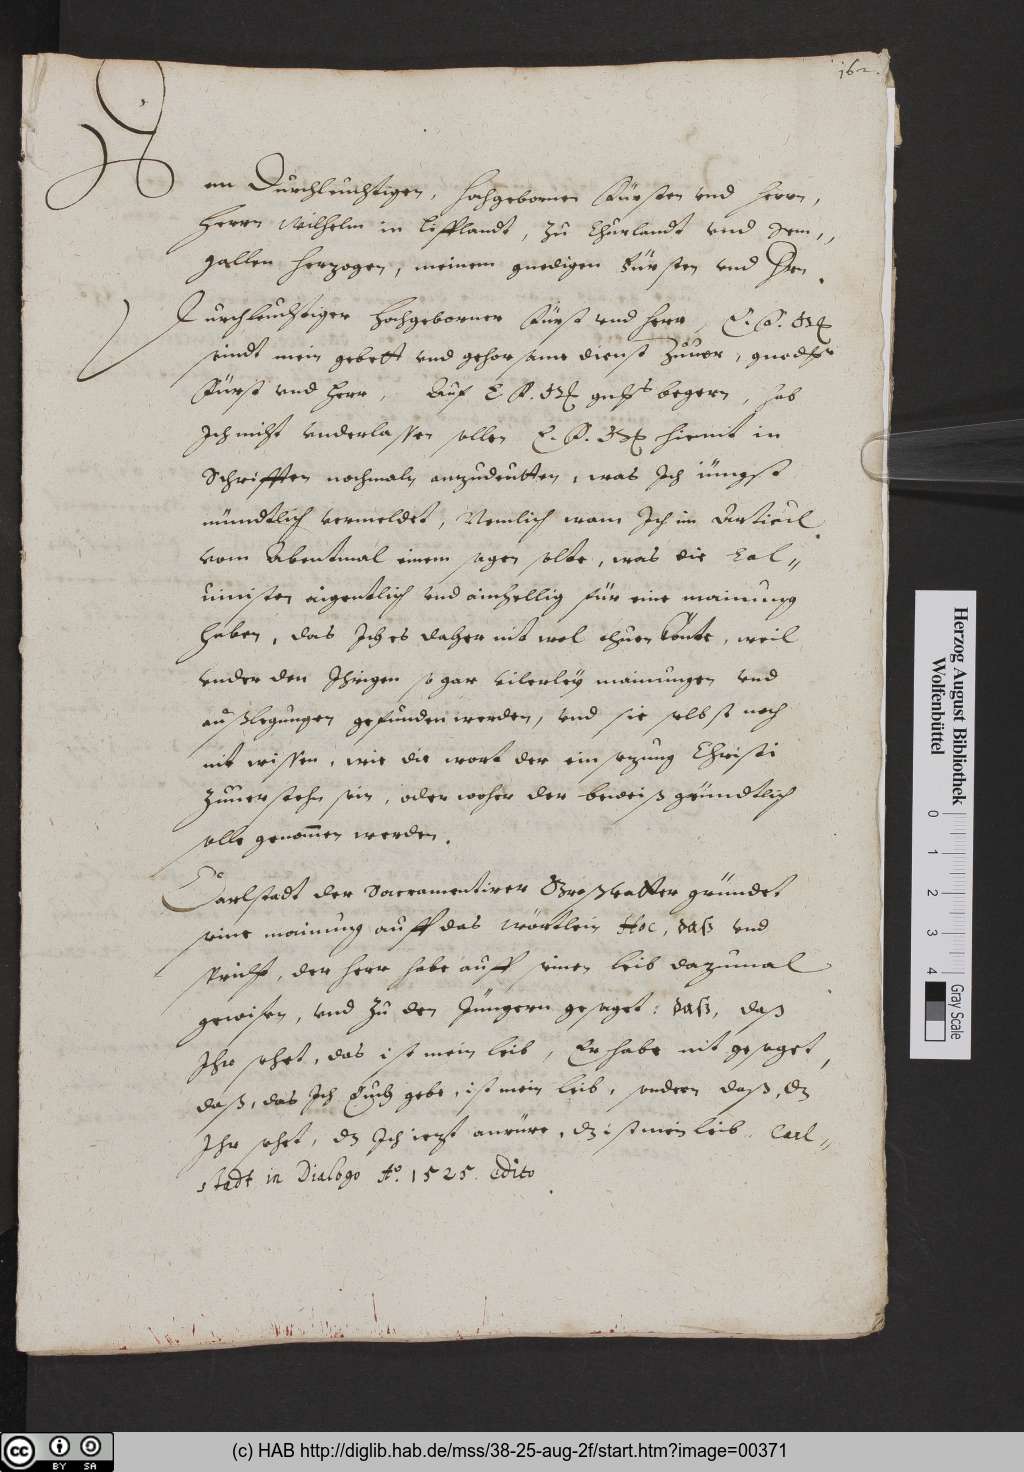 162.
Dem Durchleuchtigen, Hochgebornen Fürsten vnd Herrn,
Herrn Wilhelm in Lifflandt, zu Churlandt vnd Sem„
gallen Herzogen, meinem gnedigen Fürsten vnd Hen.
Durchleuchtiger Hochgeborner Fürst vnd Herr, E. F. G.
seindt mein gebett vnd gehorsame dienst zuuor, gnedigr
Fürst vnd Herr, Auf E. F. G. begern, hab
Ich nicht vnderlassen sollen E. F. G. hiemit in
Schrifften nochmaln anzudeutten, was Ich iüngst
mündtlich vermeldet, Nemlich wann Ich im Articul
vom Abentmal einem sagen solte, was die Cal„
uinisten aigentlich vnd ainhellig für eine mainung
haben, das Ich es daher nit wol thuen könte, weil
vnder den Ihrigen so gar vilerley mainungen vnd
außlegungen gefunden werden, vnd sie selbst noch
nit wissen, wie die wort der einsezung Christi
zuuerstehn sein, oder woher der beweiß gründtlich
solle genommen werden.
Carlstadt der Sacramentirer Großvatter gründet
seine mainung auff das wörtlein Hoc, daß vnd
spricht, der Herr habe auff seinen leib dazumal
gewisen, vnd zu den Jüngern gesaget: daß, daß
Ihr sehet, das ist mein leib, Er habe nit gesaget,
daß, das Ich Euch gebe, ist mein leib, sondern daß, dz
Ihr sehet, dz Ich iezt anrüre, dz ist mein leib. Carl„
stadt in Dialogo Ao. 1525. edito
Herzog August Bibliothek
Wolfenbüttel
0 1 2 3 4
Gray Scale
cc BY SA
(c) HAB http://diglib.hab.de/mss/38-25-aug-2f/start.htm?image=00371